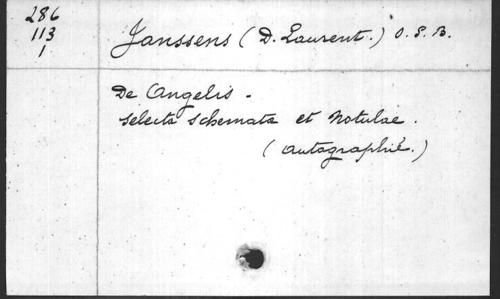 286
113
1
Janssens (D. Laurent.) O. S. B.
De Angelis -
selecta schemata et Notulae.
(autographié.)